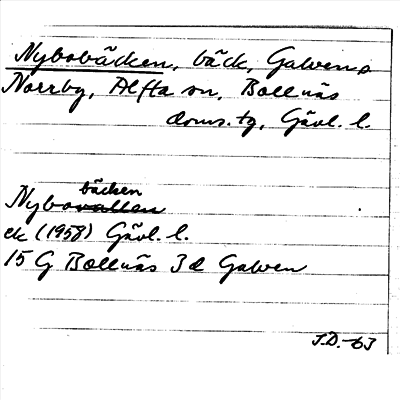 Nybobäcken, bäck, Galvens
Norrby, Alfta sn, Bollnäs
doms. tg, Gävl. l.
bäcken
Nybovallen
ek (1958) Gävl. l.
15 G Bollnäs 3d Galven
J.D. -63